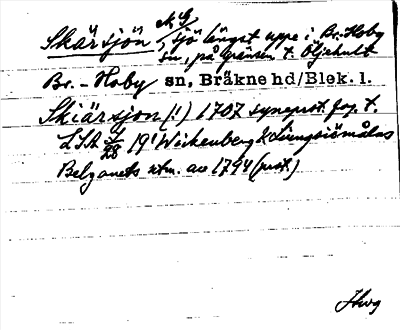 Skärsjön, N G sjö längst uppe i Br.-Hoby
sn, på gränsen t. Öljehult
Br.-Hoby sn, Bräkne hd/Blek. l.
Skiärsjon (!) 1707 syneprot. fog. t.
LSA 19¹ Wickenberg & Liungsiömålas
Belganets utm. av 1794 (prot.)